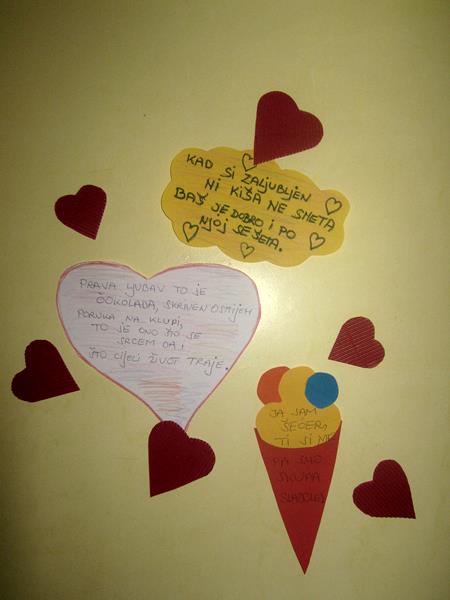 KAD SI ZALJUBLJEN
NI KIŠA NE SMETA
BAŠ JE DOBRO I PO
NJOJ SE ŠETA.
PRAVA LJUBAV TO JE
ČOKOLADA, SKRIVEN OSMIJEH
PORUKA NA KLUPI,
TO JE ONO ŠTO SE
SRCEM DA,
ŠTO CIJELI ŽIVOT TRAJE.
JA SAM
ŠEĆER,
TI SI
PA SMO
SKUPA